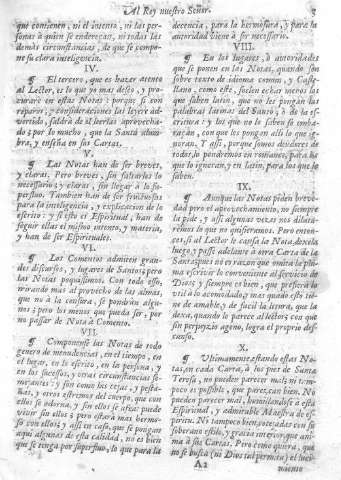 Al Rey nuestro Señor.
que contienen, ni el intento, ni las per-
sonas à quien se endereçan, ni todas las
demàs circunstancias, de que se compo-
ne su clara inteligencia.
IV.
¶ El tercero, que es hazer atento
al Lector, es lo que yo mas deseo, y pro-
curarè en estas Notas: porque si con
reparos, y consideraciones las leyere ad-
vertido, saldrà de alli mas aprovecha-
do; por lo mucho, que la Santa alum-
bra, y enseña en sus Cartas.
V.
¶ Las Notas han de ser breves,
y claras. Pero breves, sin faltarles lo
necessario; y claras, sin llegar à lo su-
perfluo. Tambien han de ser fructuosas
para la inteligencia, y explicacion de lo
escrito: y si este es Espiritual, han de
seguir ellas el mismo intento, y materia,
y han de ser Espirituales.
VI.
¶ Los Comentos admiten gran-
des discursos, y lugares de Santos; pero
las Notas poquissimos. Con todo esso,
mirando mas al provecho de las almas,
que no à la censura, se pondràn algu-
nos; pero los menos que pueda ser, por
no passar de Nota à Comento.
VII.
¶ Componense las Notas de todo
genero de menudencias, en el tiempo, en
el lugar, en lo escrito, en la persona, y
en los sucessos, y otras circunstancias se-
mejantes: y son como las cejas, y pesta-
ñas, y otros estremos del cuerpo, que con
ellos se adorna, y sin ellos se afea: puede
vivir sin ellos; pero estarà mas hermo-
so con ellos; y assi en caso, que se pongan
aqui algunas de esta calidad, no es bien
que se tenga por superfluo, lo que para la
decencia, para la hermosura, y para la
autoridad viene à ser necessario.
VIII.
¶ En los lugares, ò autoridades
que se ponen en las Notas, quando son
sobre texto de idioma comun, y Caste-
llano, como este, suelen echar menos los
que saben latin, que no les pongan las
palabras latinas del Santo, ò de la es-
critura: y los que no lo saben se emba-
raçan, con que les pongan alli lo que ig-
noran. Y assi, porque somos deudores de
todos, lo pondremos en romance, para los
que lo ignoran, y en latin, para los que lo
saben.
IX.
¶ Aunque las Notas piden breve-
dad para el aprovechamiento, no siempre
la pide, y assi algunas vezes nos dilata-
remos lo que no quisieramos. Pero enton-
ces, si al Lector le cansa la Nota, dexela
luego, y passe adelante à otra Carta de la
Santa; pues no es razon que omita la plu-
ma escrivir lo conveniente al servicio de
Dios; y siempre es bien, que prefiera lo
util à lo acomodado; mas quedo esta tie-
ne de amable, y de facil la letura, que la
dexa, quando le parece al lector; con que
sin perjuyzio ageno, logra el proprio des-
canso.
X.
¶ Ultimamente, estando estas No-
tas, en cada Carta, à los pies de Santa
Teresa, no pueden parecer mal; ni tam-
poco es possible, que parezcan bien. No
pueden parecer mal, humillandose à esta
Espiritual, y admirable Maestra de es-
piritu. Ni tampoco bien, cotejadas con su
soberano estilo, y gracia interior, que ani-
ma à sus Cartas. Pero como quiera, que
no se busca (ni Dios tal permita) el luci-
A 2
miento